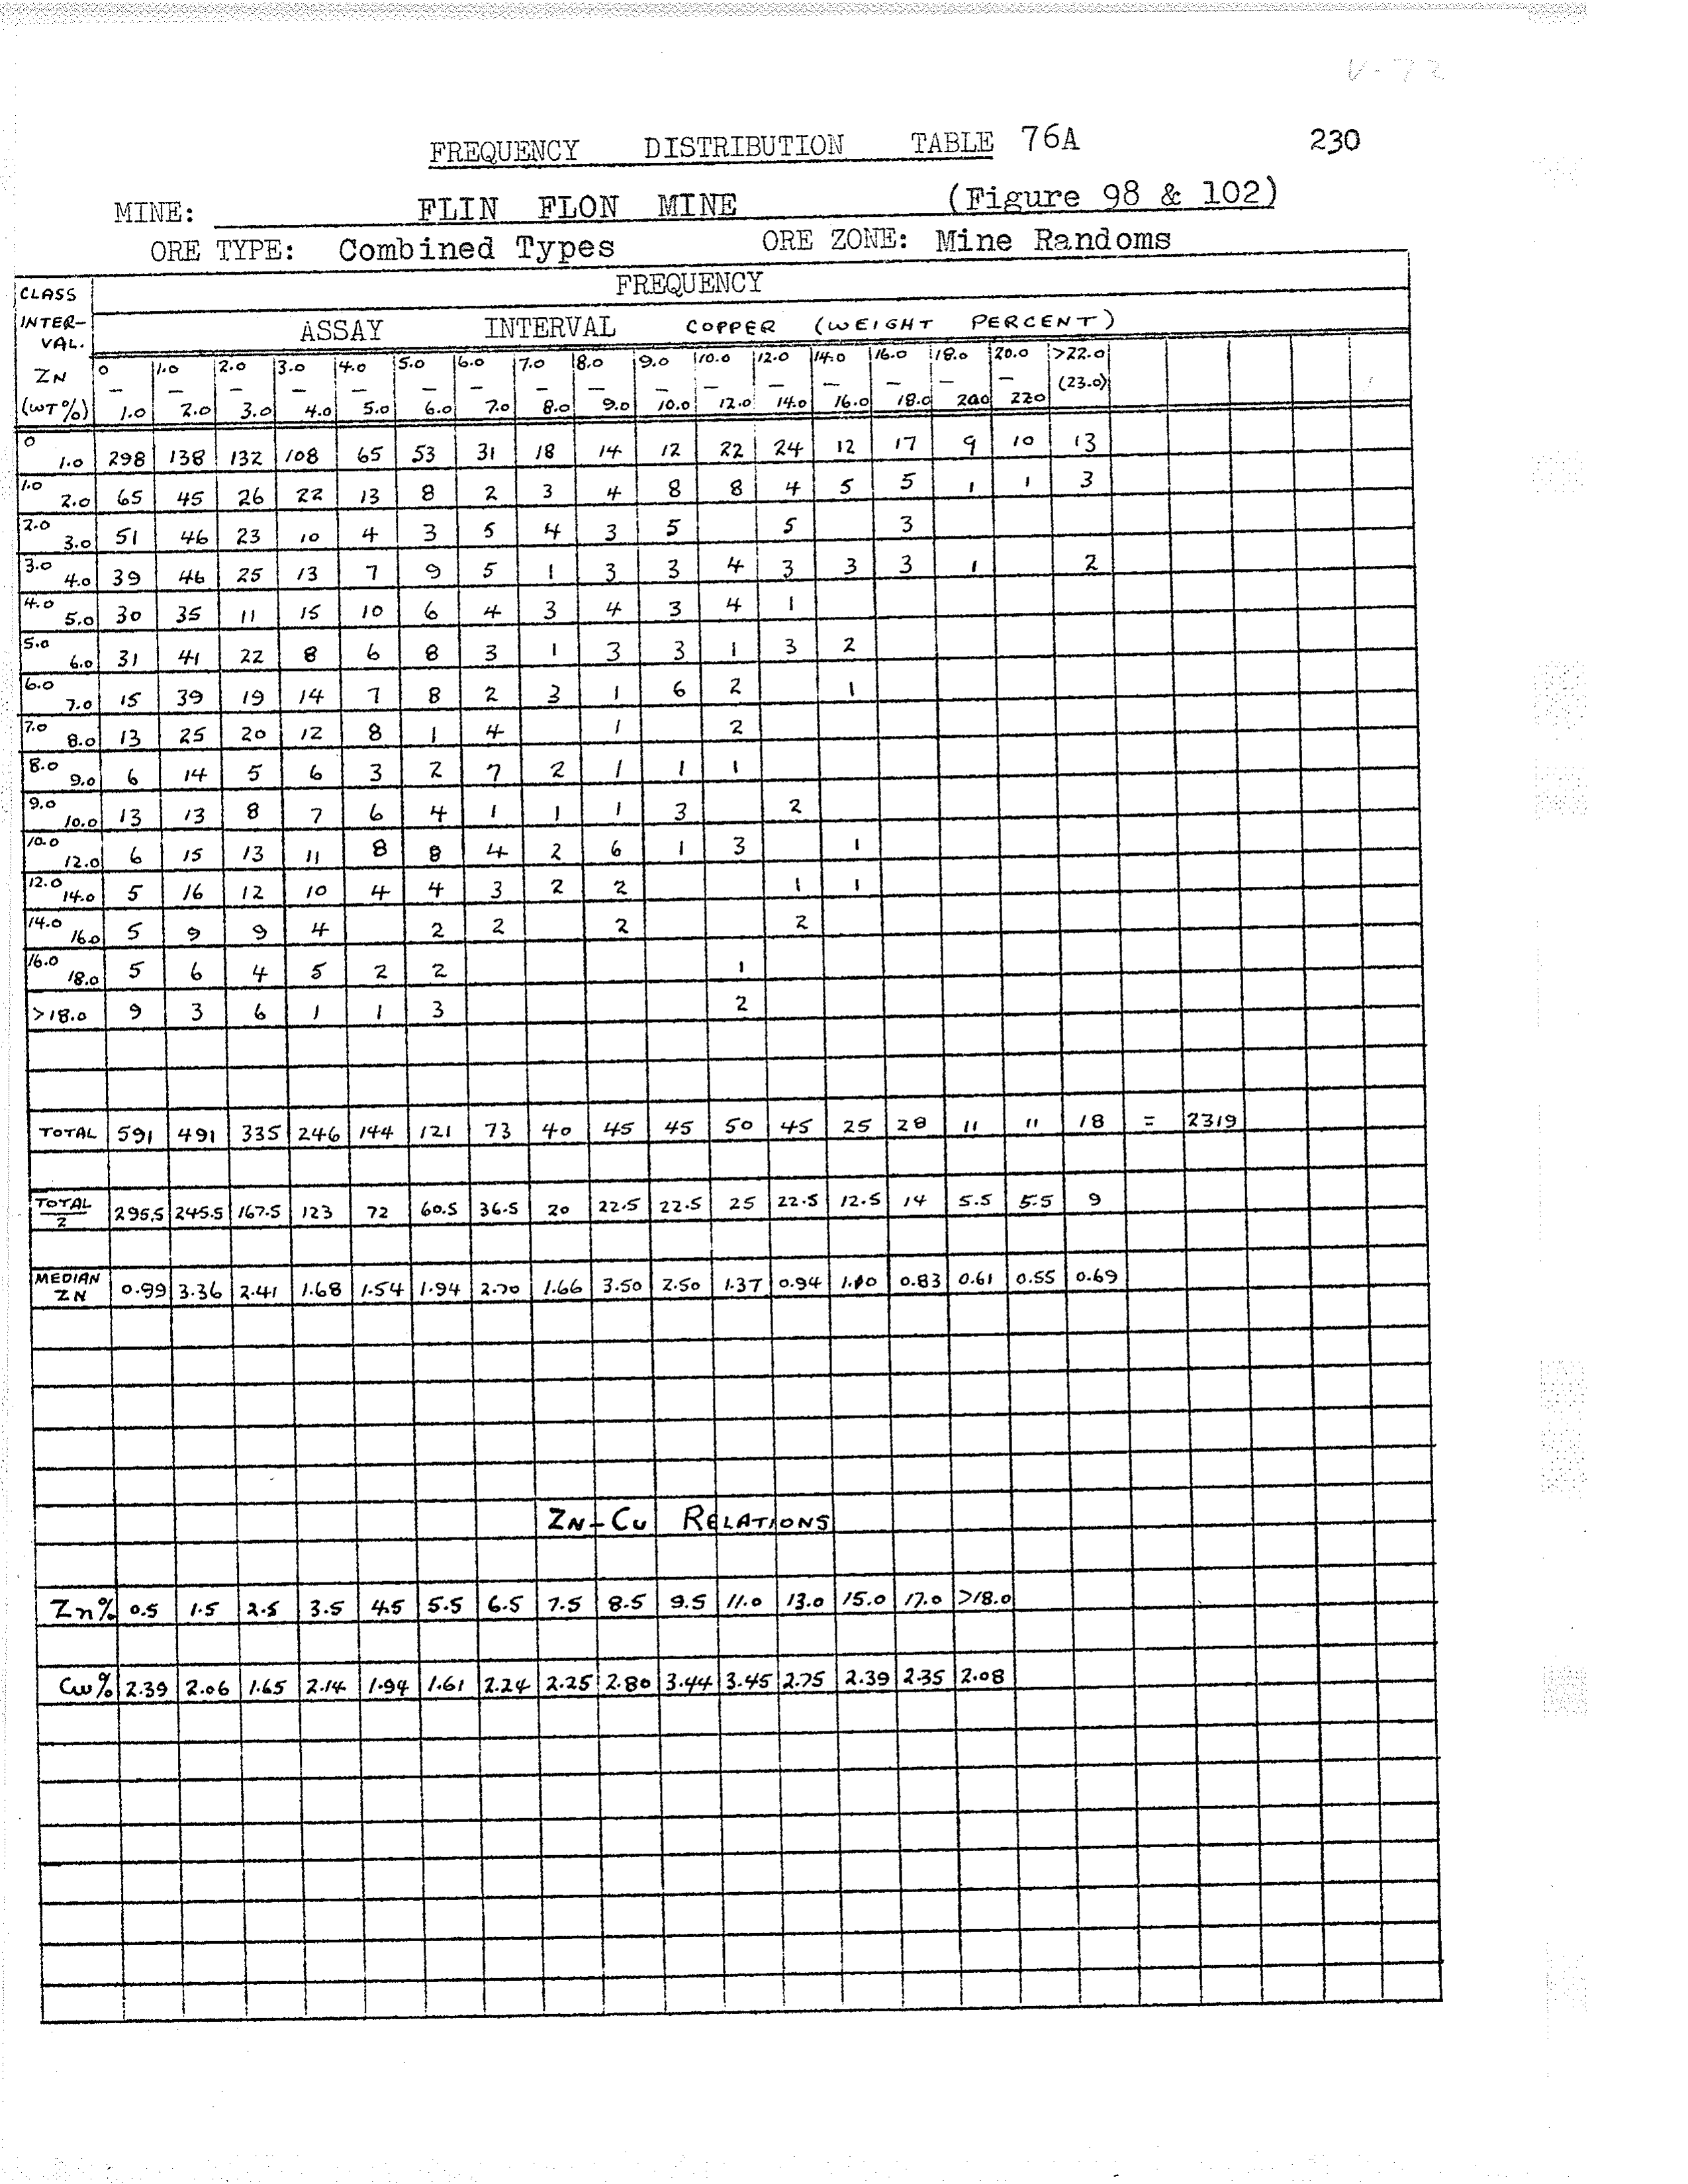 V-72
FREQUENCY DISTRIBUTION TABLE 76A 230
MINE: FLIN FLON MINE (Figure 98 & 102)
ORE TYPE: Combined Types ORE ZONE: Mine Randoms
CLASS INTER-VAL. ZN (WT%)
FREQUENCY
ASSAY INTERVAL COPPER (WEIGHT PERCENT)
0 1.0 2.0 3.0 4.0 5.0 6.0 7.0 8.0 9.0 10.0 12.0 14.0 16.0 18.0 20.0 >22.0
– – – – – – – – – – – – – – – – (23.0)
1.0 2.0 3.0 4.0 5.0 6.0 7.0 8.0 9.0 10.0 12.0 14.0 16.0 18.0 20.0 22.0
0 1.0 298 138 132 108 65 53 31 18 14 12 22 24 12 17 9 10 13
1.0 2.0 65 45 26 22 13 8 2 3 4 8 8 4 5 5 1 1 3
2.0 3.0 51 46 23 10 4 3 5 4 3 5 5 3
3.0 4.0 39 46 25 13 7 9 5 1 3 3 4 3 3 3 1 2
4.0 5.0 30 35 11 15 10 6 4 3 4 3 4 1
5.0 6.0 31 41 22 8 6 8 3 1 3 3 1 3 2
6.0 7.0 15 39 19 14 7 8 2 3 1 6 2 1
7.0 8.0 13 25 20 12 8 1 4 1 2
8.0 9.0 6 14 5 6 3 2 7 2 1 1 1
9.0 10.0 13 13 8 7 6 4 1 1 1 3 2
10.0 12.0 6 15 13 11 8 8 4 2 6 1 3 1
12.0 14.0 5 16 12 10 4 4 3 2 2 1 1
14.0 16.0 5 9 9 4 2 2 2 2
16.0 18.0 5 6 4 5 2 2 1
>18.0 9 3 6 1 1 3 2
TOTAL 591 491 335 246 144 121 73 40 45 45 50 45 25 28 11 11 18 = 2319
TOTAL/2 295.5 245.5 167.5 123 72 60.5 36.5 20 22.5 22.5 25 22.5 12.5 14 5.5 5.5 9
MEDIAN ZN 0.99 3.36 2.41 1.68 1.54 1.94 2.70 1.66 3.50 2.50 1.37 0.94 1.10 0.83 0.61 0.55 0.69
ZN-CU RELATIONS
Zn% 0.5 1.5 2.5 3.5 4.5 5.5 6.5 7.5 8.5 9.5 11.0 13.0 15.0 17.0 >18.0
Cu% 2.39 2.06 1.65 2.14 1.94 1.61 2.24 2.25 2.80 3.44 3.45 2.75 2.39 2.35 2.08